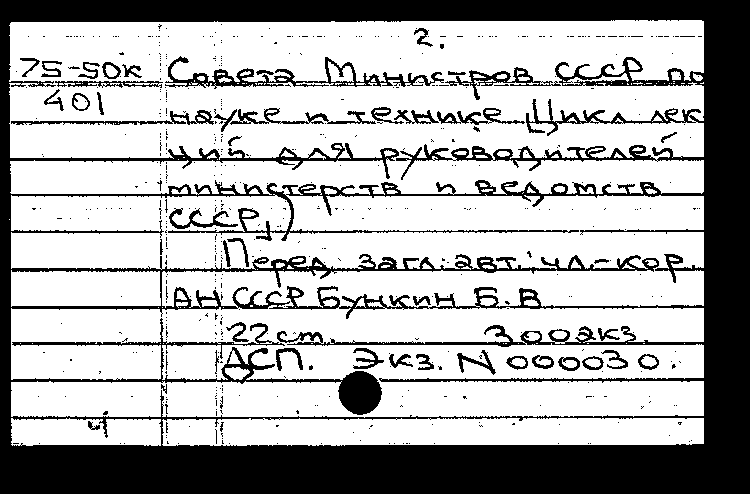 2.
75-50к Совета Министров СССР по
401 науке и технике Цикл лек
ций для руководителей
министерств и ведомств
СССР.)
Перед загл. авт.: чл.-кор.
АН СССР Бункин Б.В
22 ст. 300экз.
ДСП. Экз. N 000030.